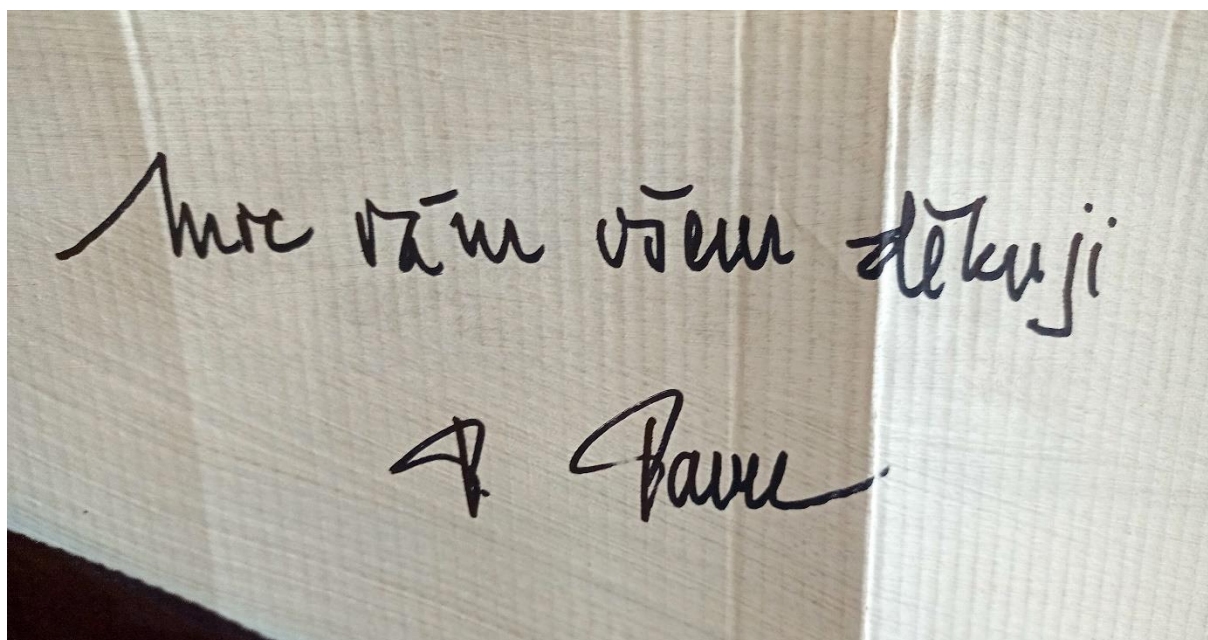 Moc vám všem děkuji
P. Pavel